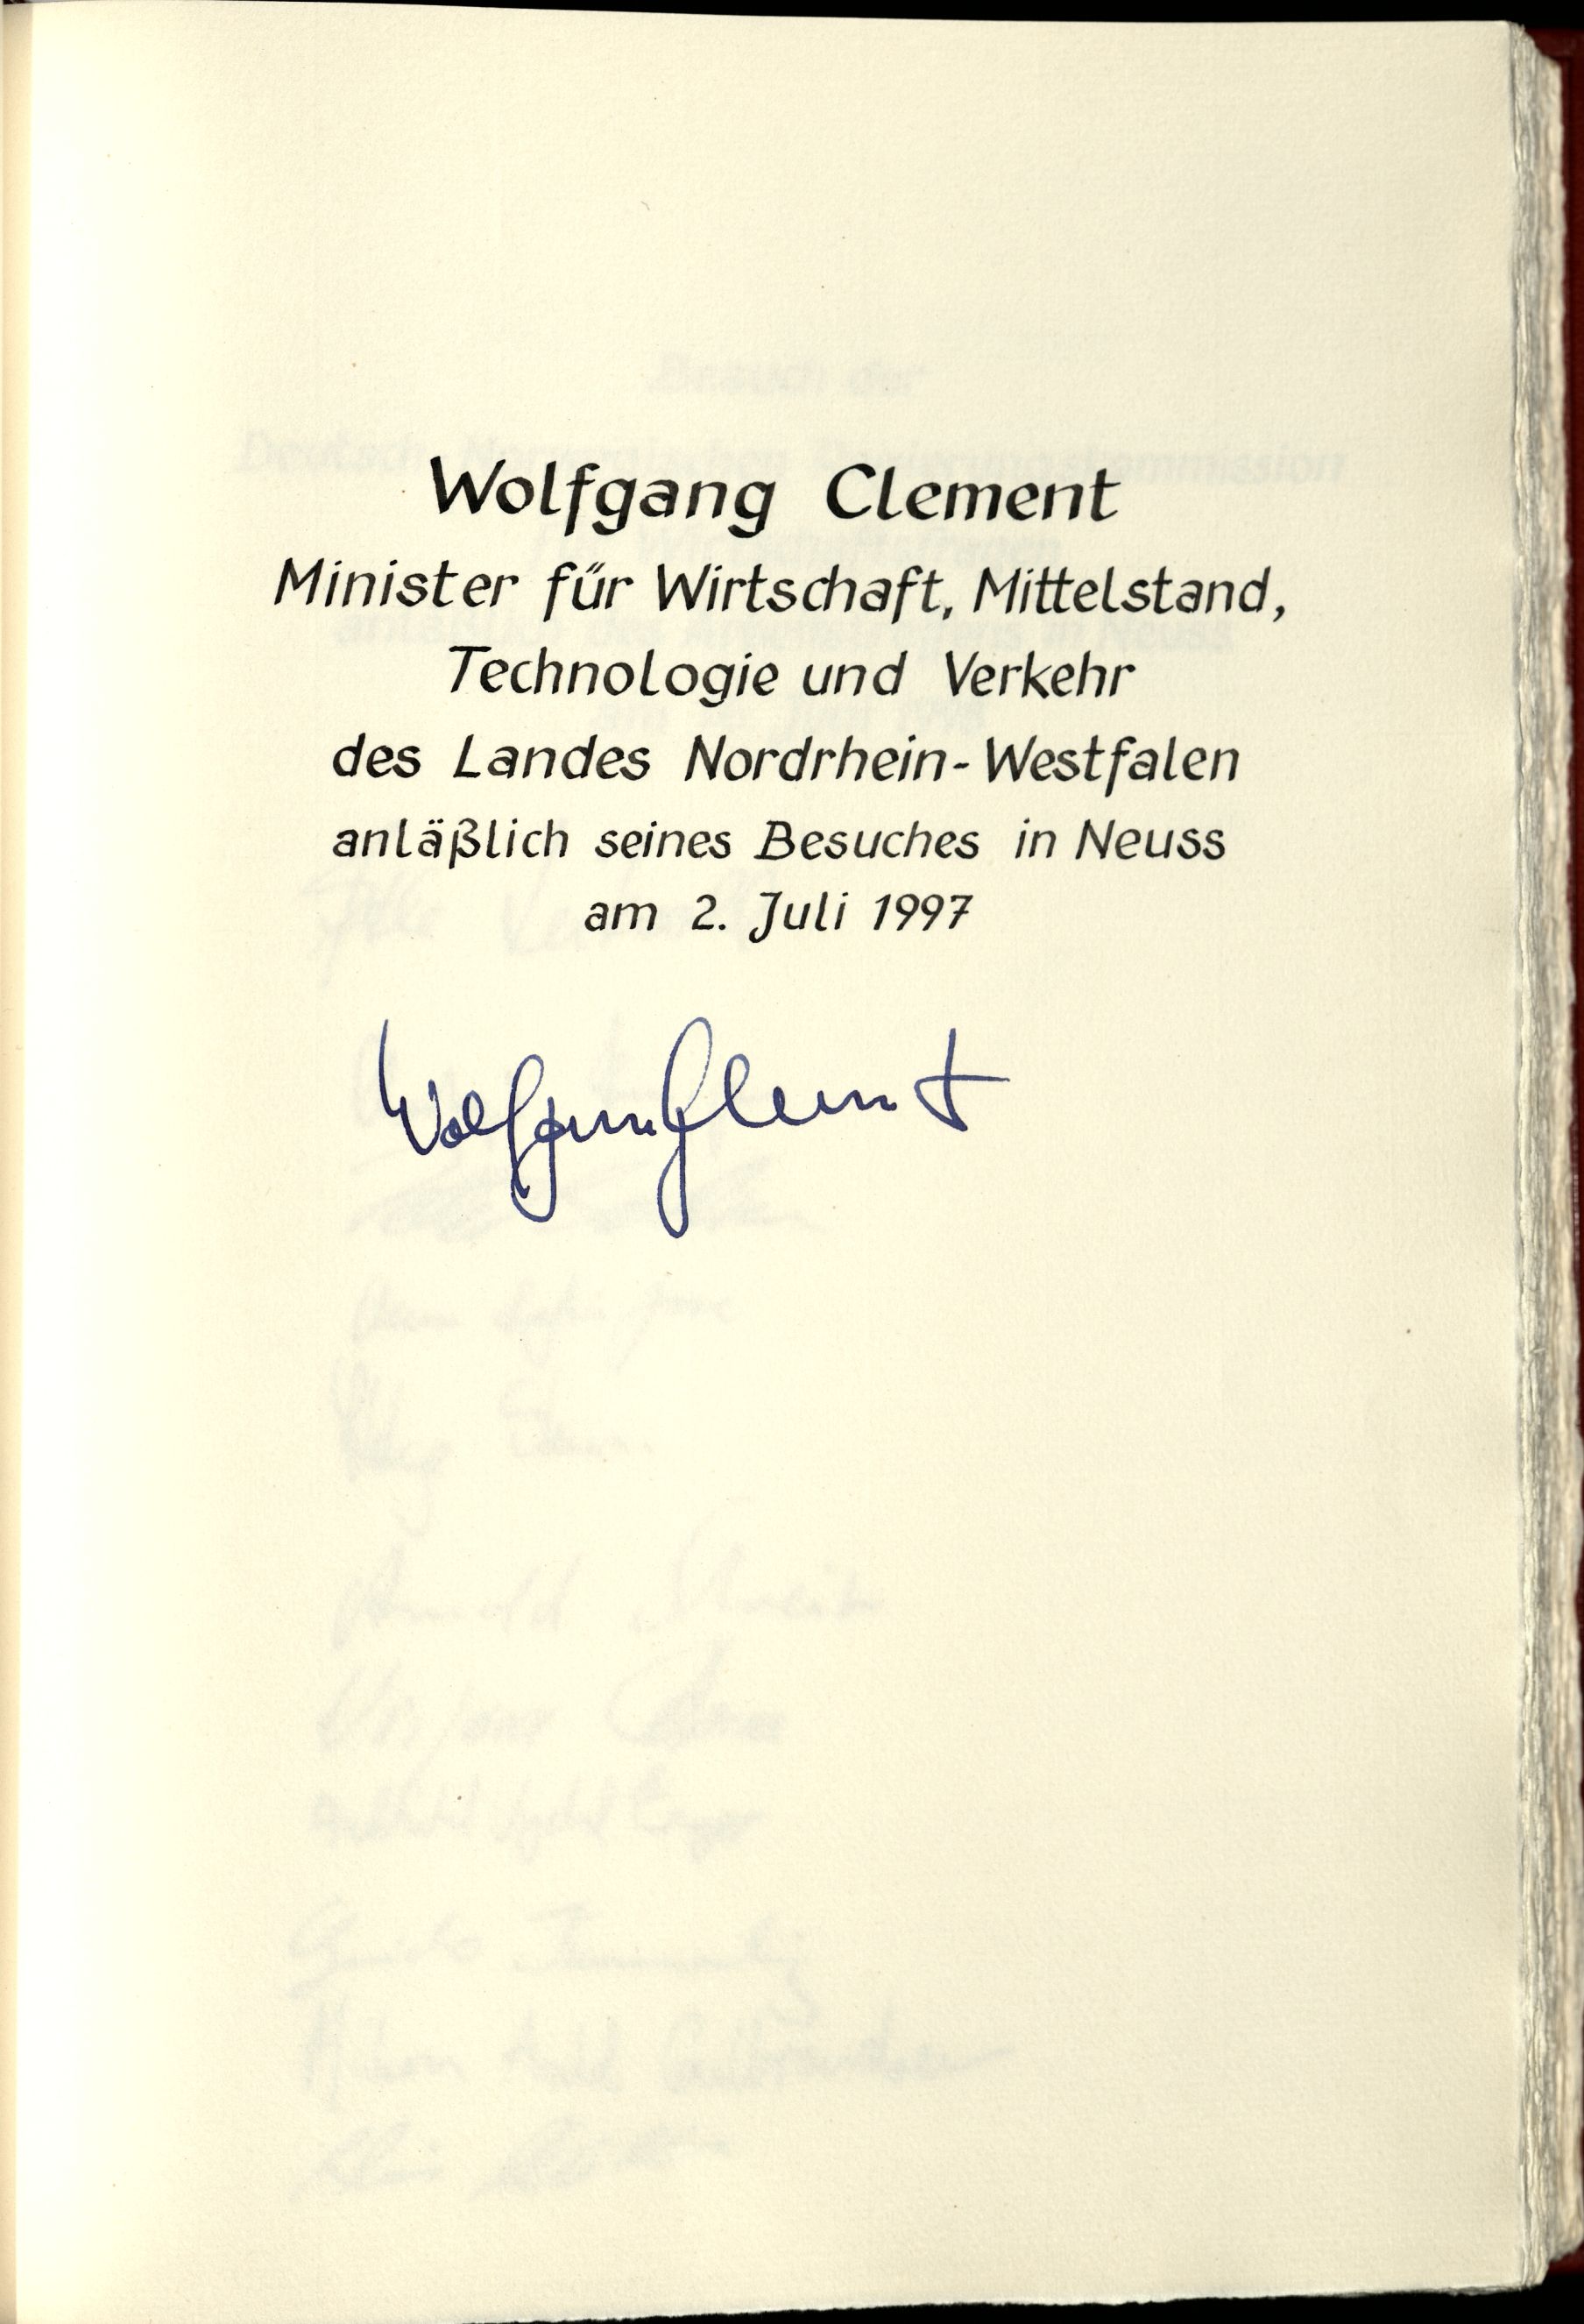 Wolfgang Clement
Minister für Wirtschaft, Mittelstand,
Technologie und Verkehr
des Landes Nordrhein-Westfalen
anläßlich seines Besuches in Neuss
am 2. Juli 1997
Wolfgang Clement